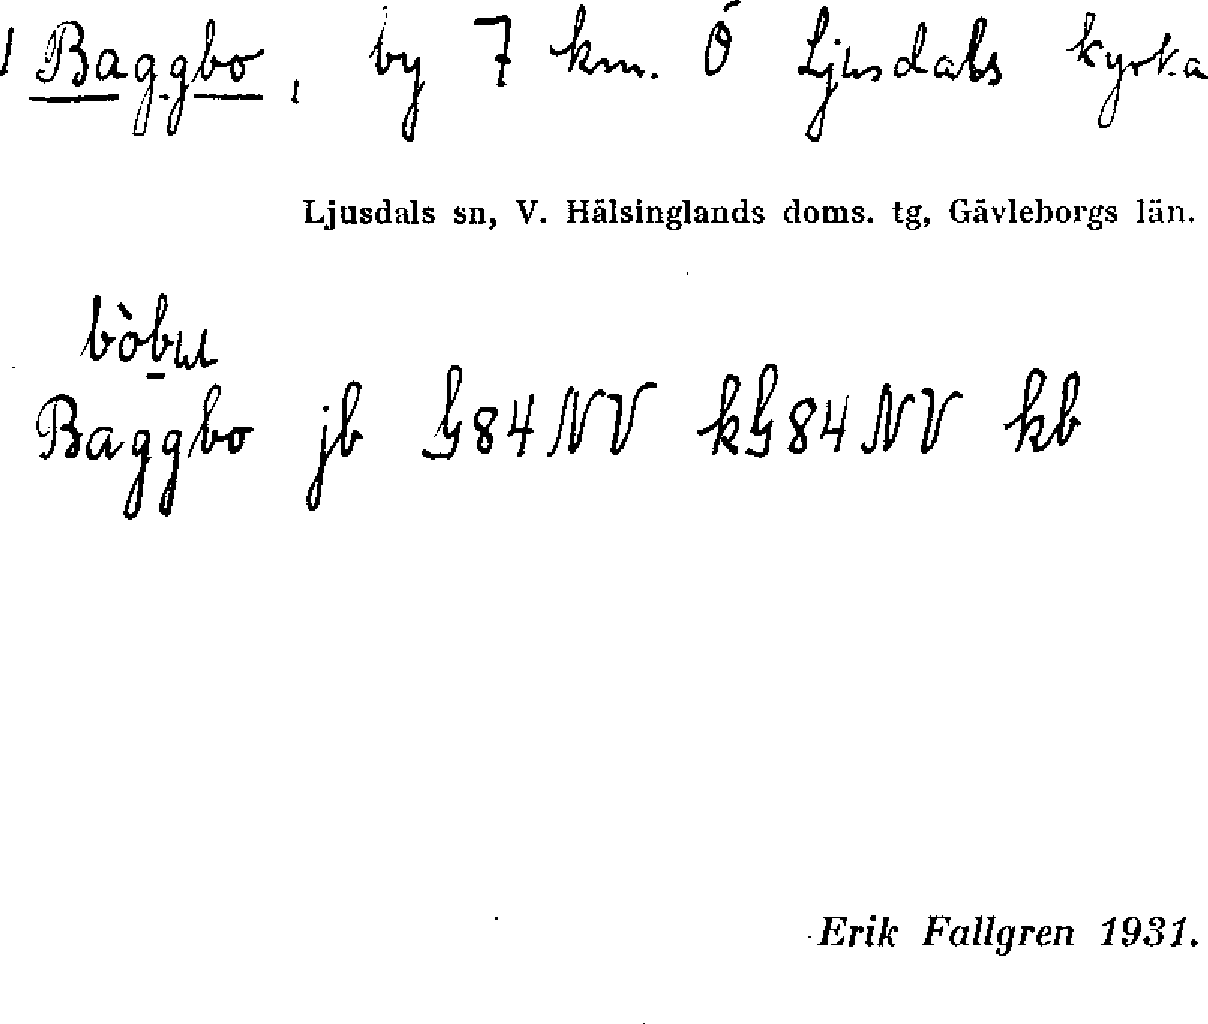 1 Baggbo, by 7 km. Ö Ljusdals kyrka
Ljusdals sn, V. Hälsinglands doms. tg, Gävleborgs län.
Baggbo jb G84NV kG84NV kb
Erik Fallgren 1931.